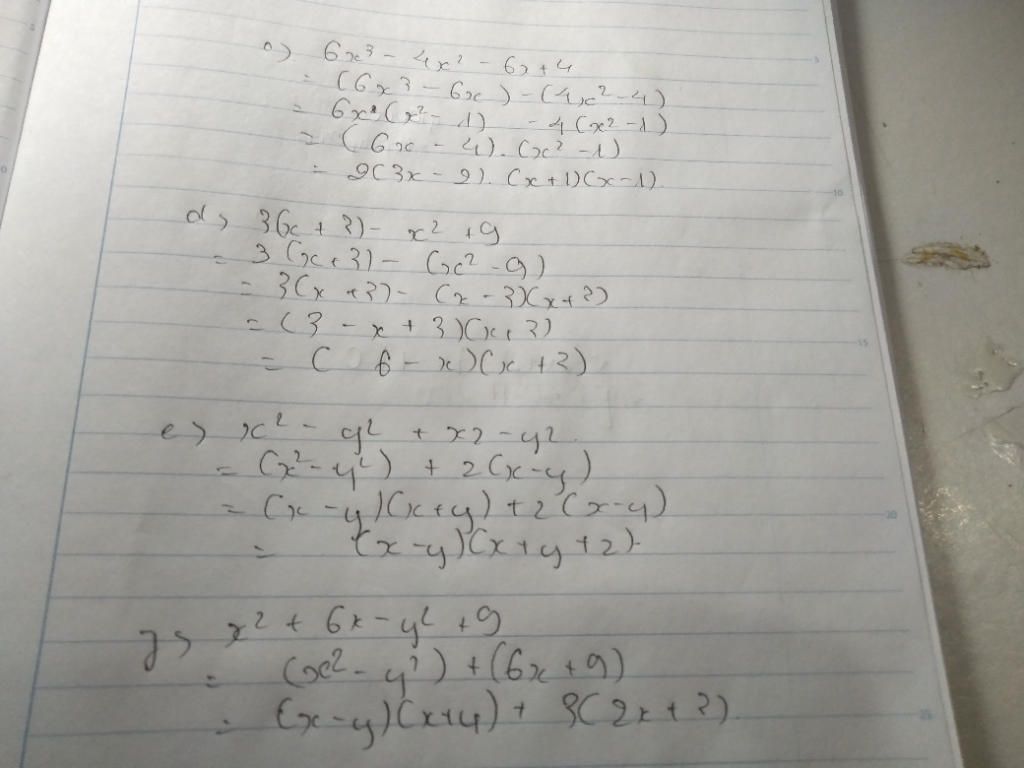 c) 6x³ - 4x² - 6x + 4
= (6x³ - 6x) - (4x² - 4)
= 6x (x² - 1) - 4(x² - 1)
= (6x - 4). (x² - 1)
= 2(3x - 2). (x + 1)(x - 1)
d) 3(x + 3) - x² + 9
= 3(x + 3) - (x² - 9)
= 3(x + 3) - (x - 3)(x + 3)
= (3 - x + 3)(x + 3)
= (6 - x)(x + 3)
e) x² - y² + x2 - y2
= (x² - y²) + 2(x - y)
= (x - y)(x + y) + 2(x - y)
= (x - y)(x + y + 2).
g) x² + 6x - y² + 9
= (x² - y²) + (6x + 9)
= (x - y)(x + y) + 3(2x + 3)